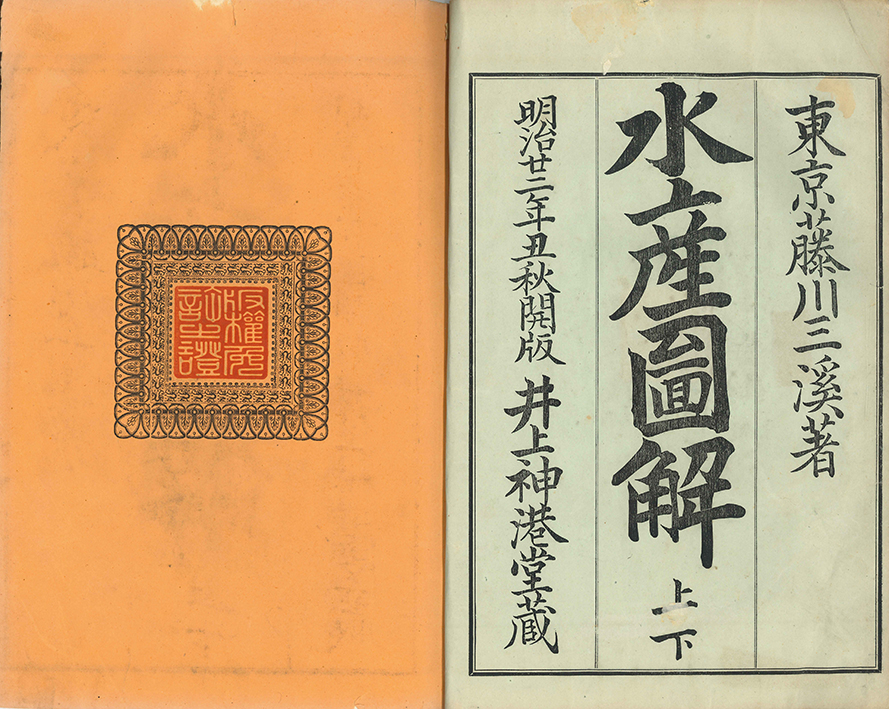 東京藤川三溪著
水産圖解 上下
明治廿二年丑秋開版 井上神港堂蔵
版權免
許之證